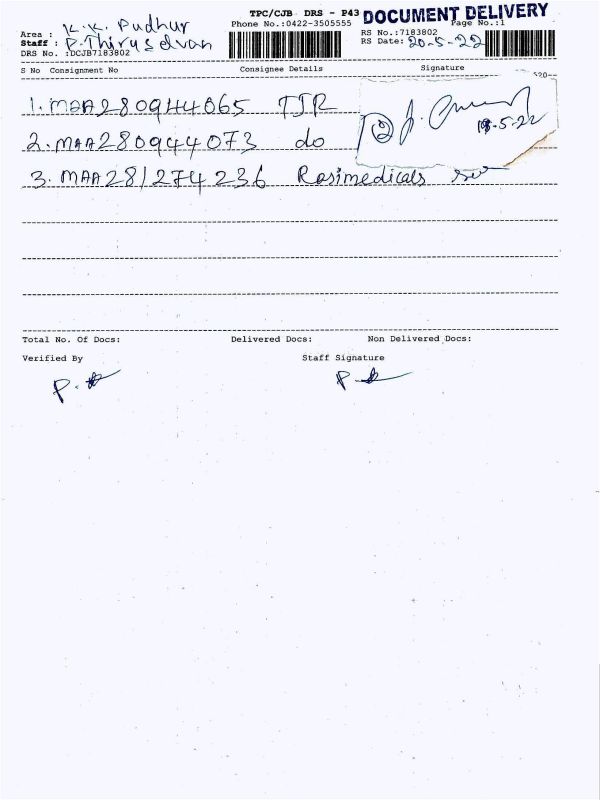 TPC/CJB DRS - P43 DOCUMENT DELIVERY
Area : K.K. Pudhur Phone No.:0422-3505555 Page No.:1
Staff : P.Thiruselvan RS No.:7183802
DRS No. :DCJB7183802 RS Date: 20-5-22
S No Consignment No Consignee Details Signature
1. MAA280944065 TJR
19-5-22
2. MAA280944073 do
3. MAA281274236 Rasimedicals
Total No. Of Docs: Delivered Docs: Non Delivered Docs:
Verified By Staff Signature